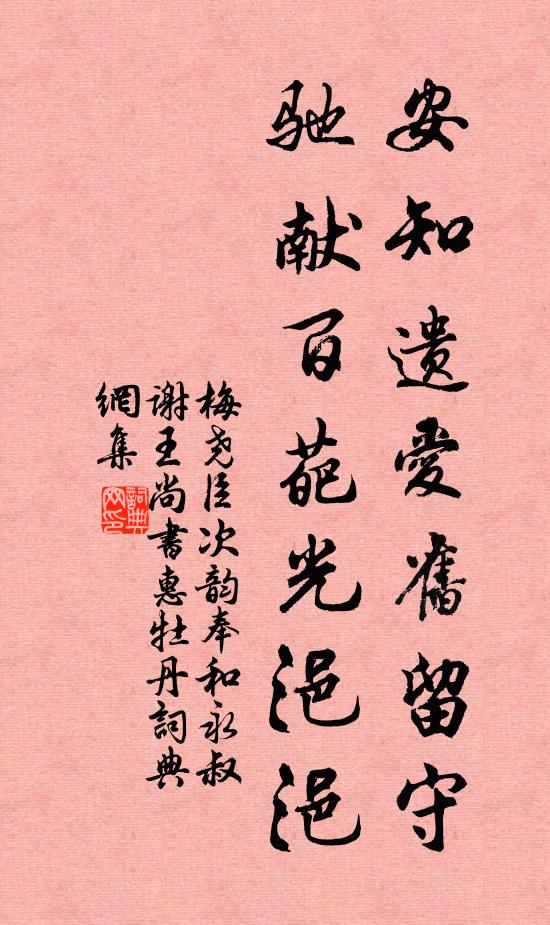 安知遗爱舊留守
驰献百葩光浥浥
梅尧臣次韵奉和永叔
谢王尚書惠牡丹詞典
網集
詞典網印